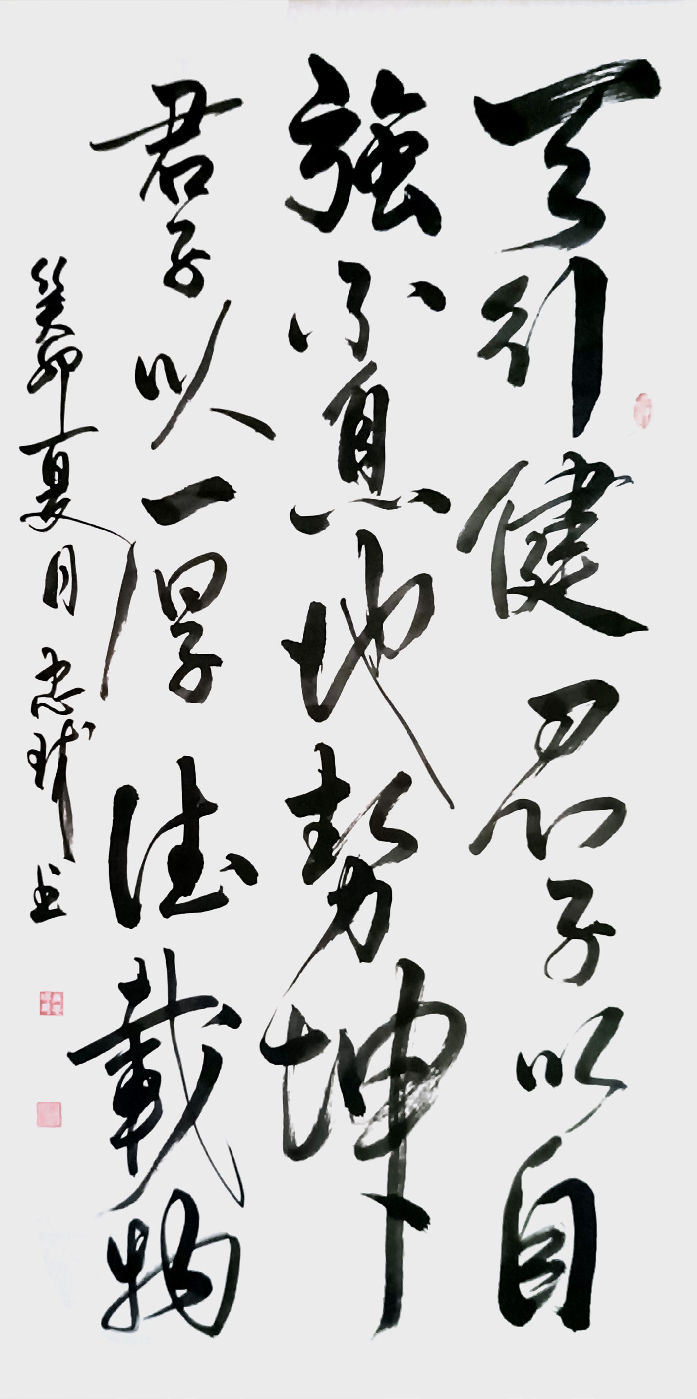 天行健君子以自
強不息地勢坤
君子以厚德載物
癸卯夏月忠球书